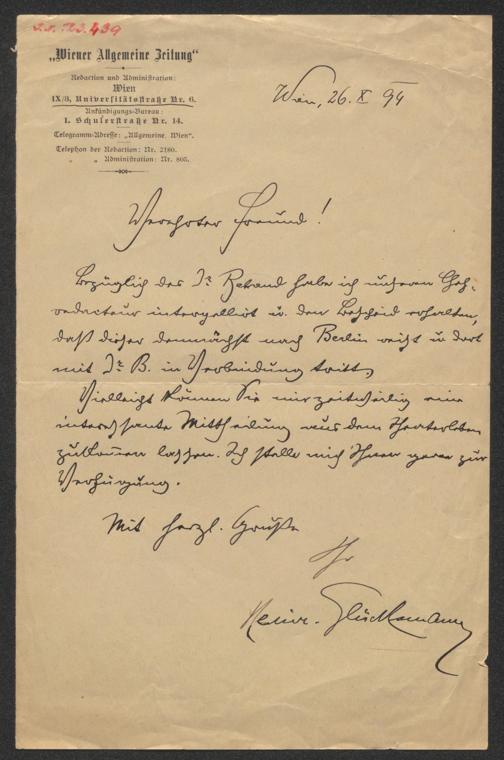 I.N. 123.439
„Wiener Allgemeine Zeitung“
Redaction und Administration:
Wien
IX/3, Universitätsstraße Nr. 6.
Ankündigungs-Bureau:
I. Schulerstraße Nr. 14.
Telegramm-Adresse: „Allgemeine, Wien“.
Telephon der Redaction: Nr. 2180.
„ „ Administration: Nr. 805.
Wien, 26. X 94
Verehrter Freund!
Bezüglich des Dr. habe ich unseren Chef-
redacteur interpellirt u. den Bescheid erhalten,
daß dieser demnächst nach Berlin reist u. dort
mit Dr. B. in Verbindung tritt.
Vielleicht können Sie mir zeitweilig eine
interessante Mittheilung aus dem Theaterleben
zukommen lassen. Ich stelle mich Ihnen gerne zur
Verfügung.
Mit herzl. Gruße
Ihr
Heinr. Glücksmann